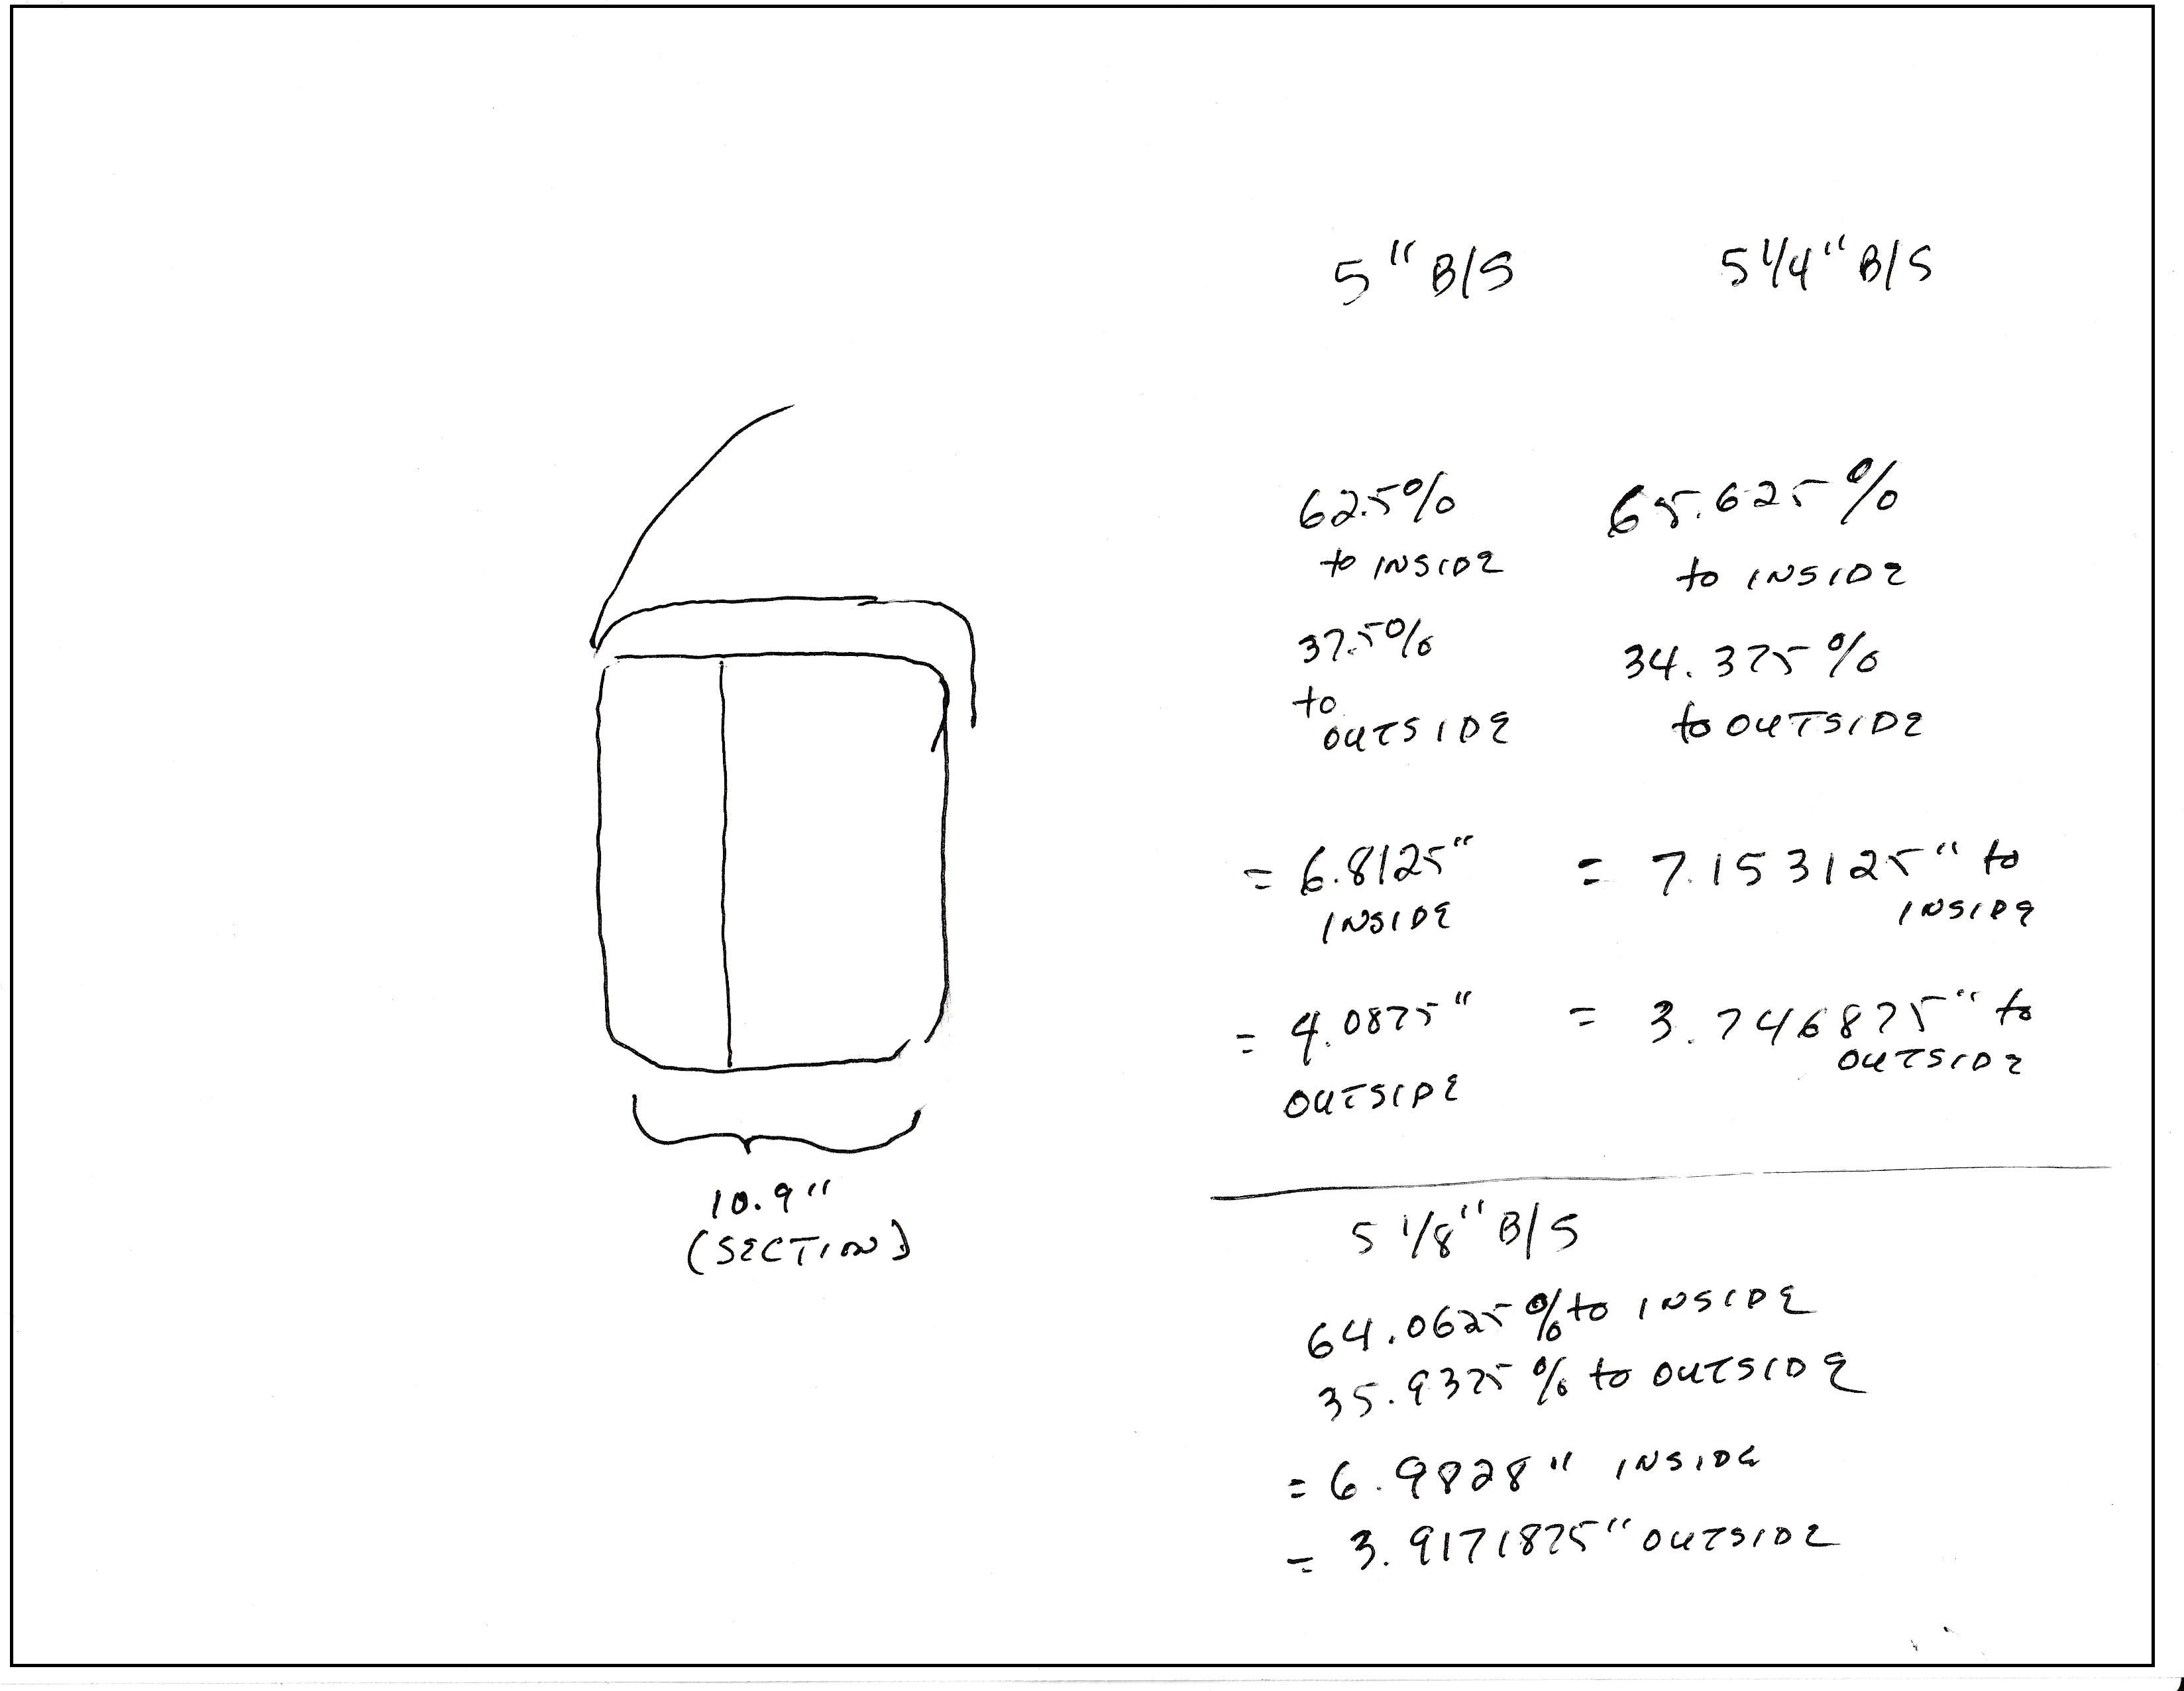 5" B/S
5 1/4" B/S
62.5%
to INSIDE
37.5%
to
OUTSIDE
65.625%
to INSIDE
34.375%
to OUTSIDE
= 6.8125"
INSIDE
= 4.0875"
OUTSIDE
= 7.153125" to
INSIDE
= 3.746875" to
OUTSIDE
10.9"
(SECTION)
5 1/8" B/S
64.0625% to INSIDE
35.9375% to OUTSIDE
= 6.9828" INSIDE
= 3.9171875" OUTSIDE